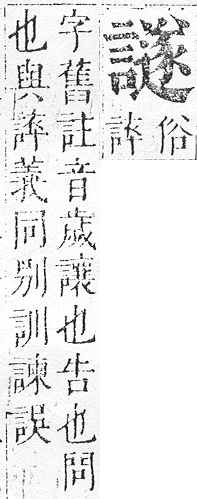 譢
俗
誶
字舊註音歲讓也告也問
也與誶義同别訓諫誤